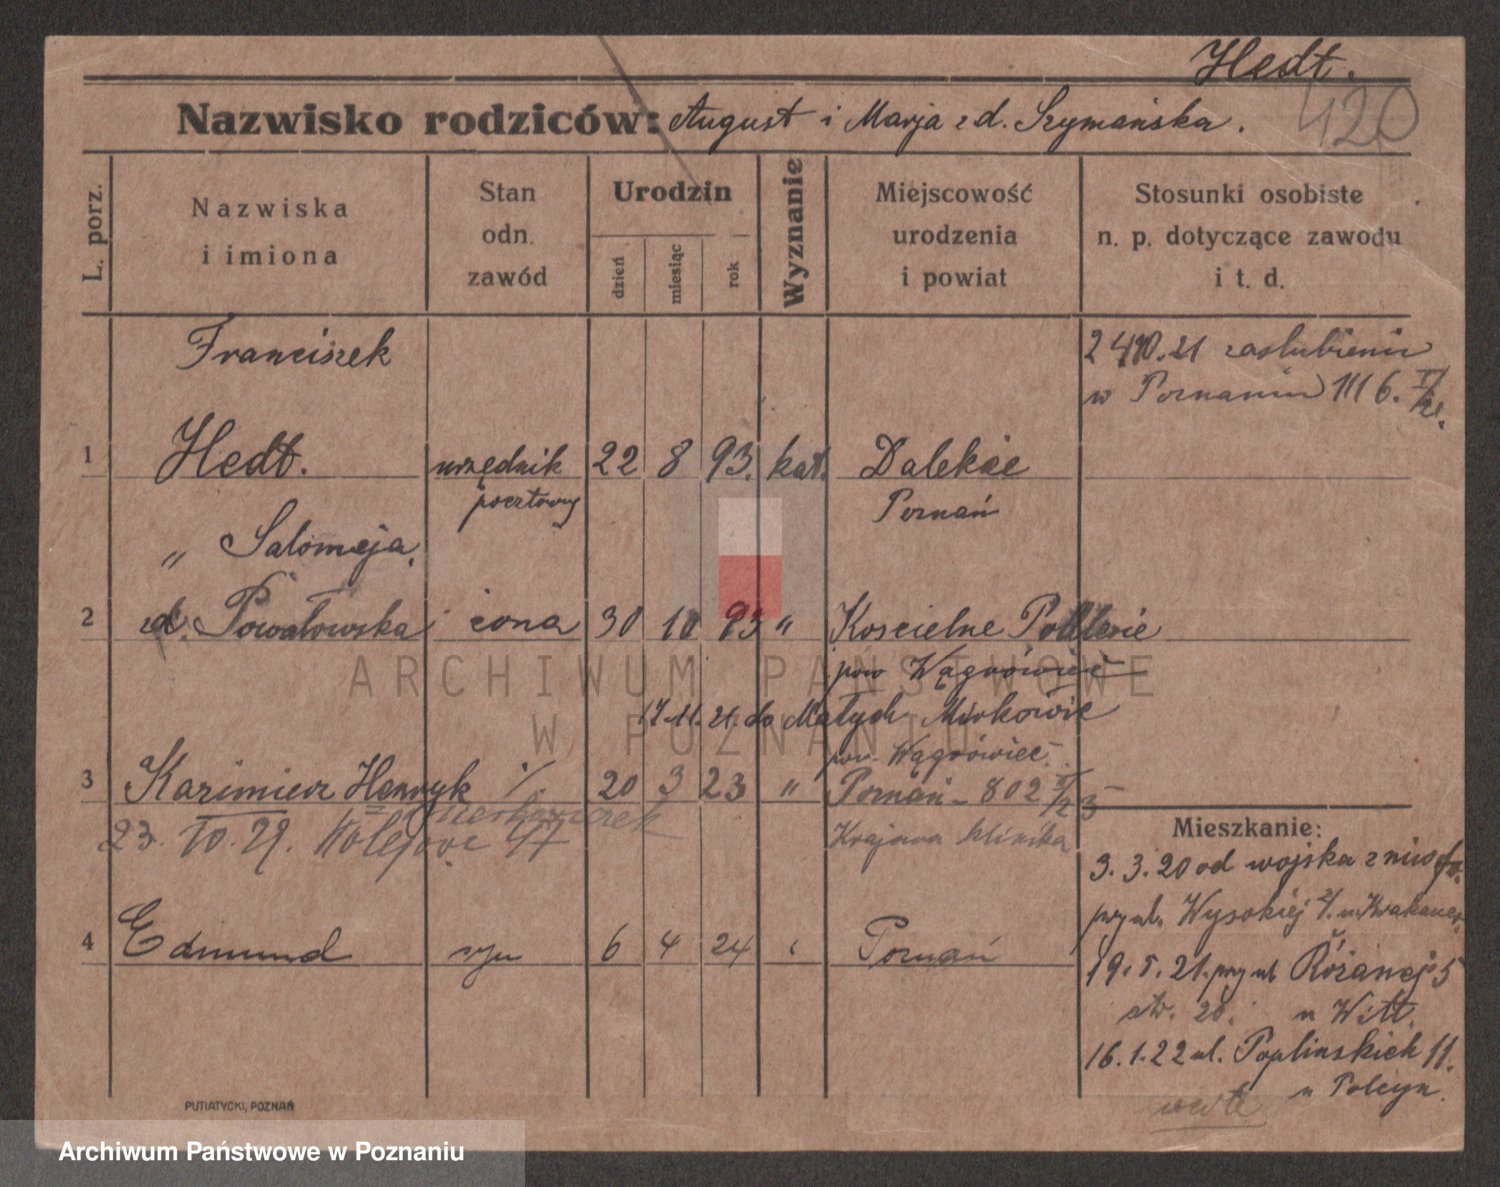 Hedt.
420
Nazwisko rodziców: August i Marja z d. Szymańska.
L. porz.
Nazwiska
i imiona
Stan
odn.
zawód
Urodzin
dzień
miesiąc
rok
Wyznanie
Miejscowość
urodzenia
i powiat
Stosunki osobiste
n. p. dotyczące zawodu
i t. d.
Franciszek
1 Hedt. urzędnik 22 8 93. kat. Dalekie
pocztowy Poznań
zaślubieni
w Poznaniu 1116.
„ Salomeja
2 zd. Powałowska żona 30 10 93 „ Koscielne Podlesie
pow Wągrówiec
17.11.21. do Małych Mirkowic
pow. Wągrówiec
3 Kazimierz Henryk ·/. 20 3 23 „ Poznań - 802
23. 10. 29. Kolejowe 47 Krajowa klinika
4 Edmund syn 6 4 24 Poznań
Mieszkanie:
9. 3. 20 od wojska
przy ul. Wysokiej
19. 5. 21. przy ul Różanej 5
str. 20. u Witt.
16. 1. 22 ul. Poplinskich 11.
u
verte
PUTIATYCKI, POZNAŃ
ARCHIWUM PAŃSTWOWE
W POZNANIU
Archiwum Państwowe w Poznaniu